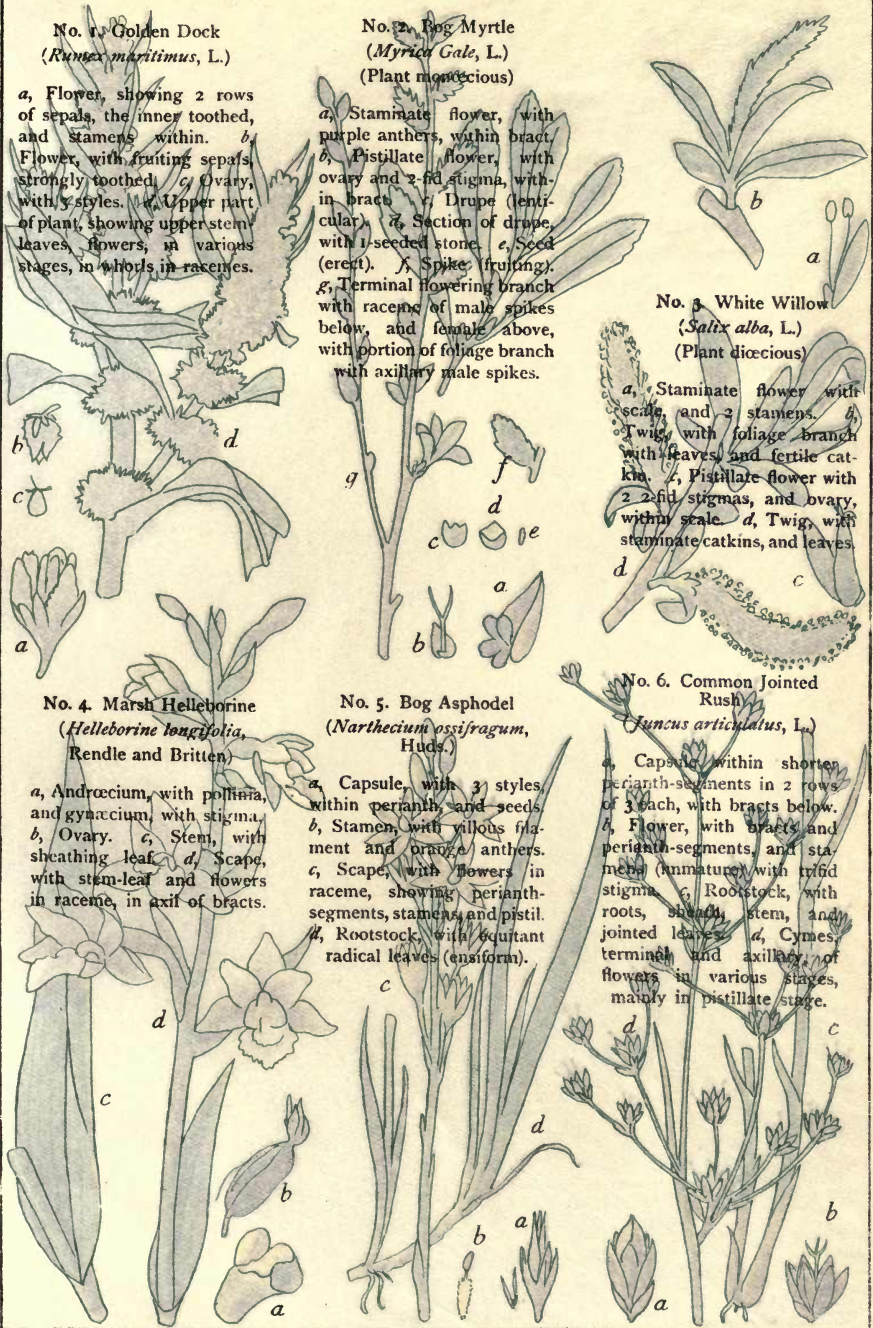 No. 1. Golden Dock
(Rumex maritimus, L.)
a, Flower, showing 2 rows
of sepals, the inner toothed,
and stamens within. b,
Flower, with fruiting sepals,
strongly toothed. c, Ovary,
with 3 styles. d, Upper part
of plant, showing upper stem-
leaves, flowers, in various
stages, in whorls in racemes.
b
d
c
a
No. 2. Bog Myrtle
(Myrica Gale, L.)
(Plant monœcious)
a, Staminate flower, with
purple anthers, within bract.
b, Pistillate flower, with
ovary and 2-fid stigma, with-
in bract. c, Drupe (lenti-
cular). d, Section of drupe,
with 1-seeded stone. e, Seed
(erect). f, Spike (fruiting).
g, Terminal flowering branch
with raceme of male spikes
below, and female above,
with portion of foliage branch
with axillary male spikes.
g
f
d
c
e
a
b
b
a
No. 3. White Willow
(Salix alba, L.)
(Plant diœcious)
a, Staminate flower with
scale, and 2 stamens. b,
Twig, with foliage branch
with leaves, and fertile cat-
kin. c, Pistillate flower with
2 2-fid stigmas, and ovary,
within scale. d, Twig, with
staminate catkins, and leaves.
d
c
No. 4. Marsh Helleborine
(Helleborine longifolia,
Rendle and Britten)
a, Andrœcium, with pollinia,
and gynæcium, with stigma.
b, Ovary. c, Stem, with
sheathing leaf. d, Scape,
with stem-leaf and flowers
in raceme, in axil of bracts.
d
c
b
a
No. 5. Bog Asphodel
(Narthecium ossifragum,
Huds.)
a, Capsule, with 3 styles,
within perianth, and seeds.
b, Stamen, with villous fila-
ment and orange anthers.
c, Scape, with flowers in
raceme, showing perianth-
segments, stamens, and pistil.
d, Rootstock, with equitant
radical leaves (ensiform).
c
d
b
a
No. 6. Common Jointed
Rush
(Juncus articulatus, L.)
a, Capsule within shorter
perianth-segments in 2 rows
of 3 each, with bracts below.
b, Flower, with bracts and
perianth-segments, and sta-
mens (immature) with trifid
stigma. c, Rootstock, with
roots, sheath, stem, and
jointed leaves. d, Cymes,
terminal and axillary, of
flowers in various stages,
mainly in pistillate stage.
d
c
b
a